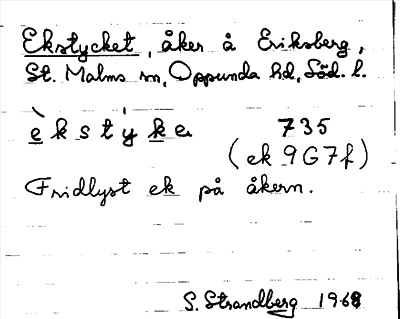 Ekstycket, åker å Eriksberg,
St. Malms sn, Oppunda hd, Söd. l.
èkstýke. 735
(ek 9G7f)
Fridlyst ek på åkern.
S. Strandberg 1968